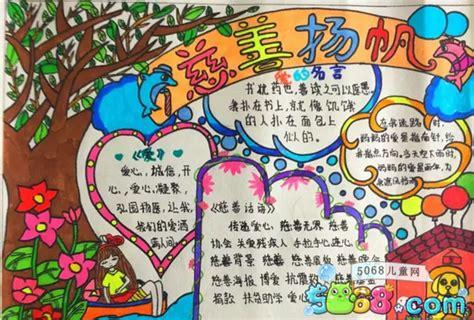 慈善扬帆
爱的名言
书犹药也，善读之可以医愚
者扑在书上，就像饥饿
的人扑在面包上
似的。
在我迷路时，
妈妈的爱是指南针，给
我指点方向。当天空下雨时，
妈妈的爱是雨伞，为
我遮风挡雨
《爱》
爱心，诚信，开
心，爱心，凝聚，
弘园扬医，让我
们的爱洒
满人间
《慈善话语》
传递爱心 慈善无界 慈善
协会 关爱残疾人 手拉手心连心
慈善背景 慈善图片 慈善晚会
慈善海报 博爱 抗震救
捐款 扶贫助学 爱心
5068儿童网
5068.com